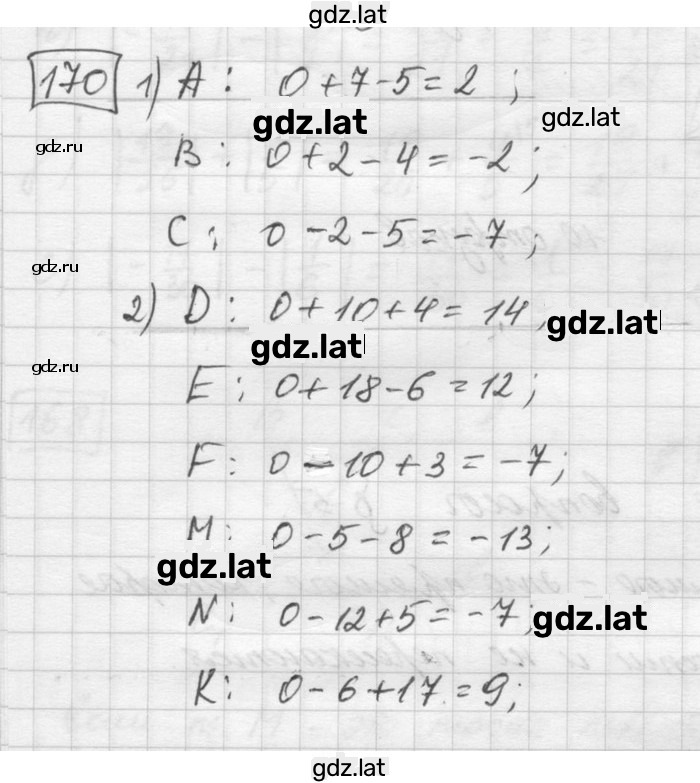 gdz.lat
170 1) A: 0 + 7 - 5 = 2 ;
gdz.lat gdz.lat
gdz.ru B: 0 + 2 - 4 = -2 ;
C: 0 - 2 - 5 = -7 ;
gdz.ru
2) D: 0 + 10 + 4 = 14 , gdz.lat
gdz.lat
gdz.ru
E: 0 + 18 - 6 = 12 ;
F: 0 - 10 + 3 = -7 ;
M: 0 - 5 - 8 = -13 ;
gdz.lat
N: 0 - 12 + 5 = -7 ; gdz.lat
K: 0 - 6 + 17 = 9 ;
gdz.lat